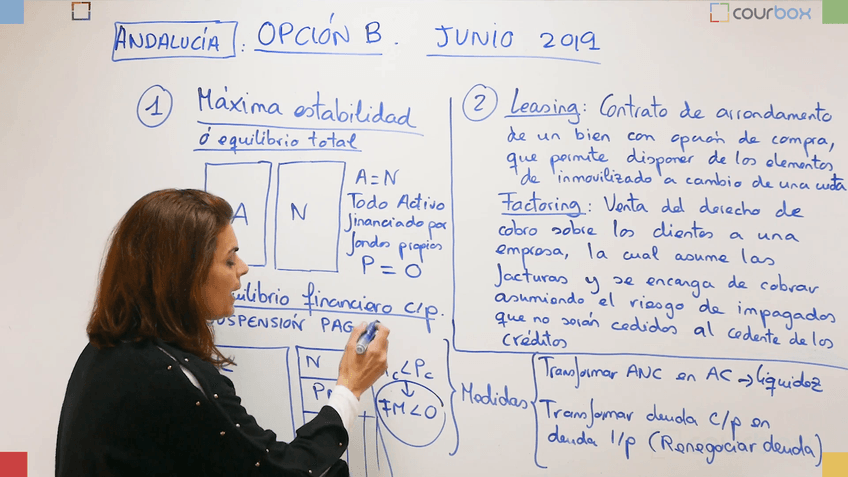 courbox
ANDALUCÍA : OPCIÓN B. JUNIO 2019
1 Máxima estabilidad
ó equilibrio total
A
N
A=N
Todo Activo
financiado por
fondos propios
P=0
financiero c/p.
N
<Pc
FM<0
Medidas
2 Leasing: Contrato de arrendamento
de un bien con opción de compra,
que permite disponer de los elementos
de inmovilizado a cambio de una cuota
Factoring: Venta del derecho de
cobro sobre los clientes a una
empresa, la cual asume las
facturas y se encarga de cobrar
asumiendo el riesgo de impagados
que no serán cedidos al cedente de los
créditos
Transformar ANC en AC → liquidez
Transformar deuda c/p en
deuda l/p (Renegociar deuda)